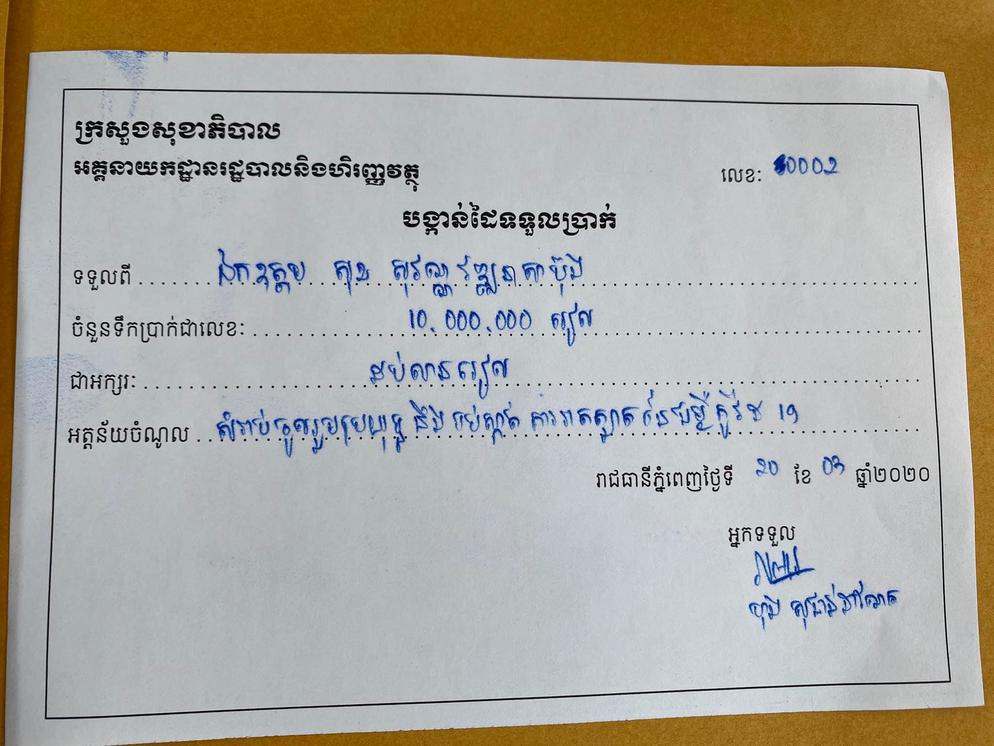 ក្រសួងសុខាភិបាល
អគ្គនាយកដ្ឋានរដ្ឋបាលនិងហិរញ្ញវត្ថុ
លេខៈ 0002
បង្កាន់ដៃទទួលប្រាក់
ទទួលពី ឯកឧត្តម សុខ សុវណ្ណវឌ្ឍនាសាប៊ុង
ចំនួនទឹកប្រាក់ជាលេខៈ 10.000.000 រៀល
ជាអក្សរៈ ដប់លានរៀល
អត្តន័យចំណូល សំរាប់ចូលរួមប្រយុទ្ធ និង ទប់ស្កាត់ ការរាតត្បាត នៃជម្ងឺ កូវីដ 19
រាជធានីភ្នំពេញថ្ងៃទី 20 ខែ 03 ឆ្នាំ២០២០
អ្នកទទួល